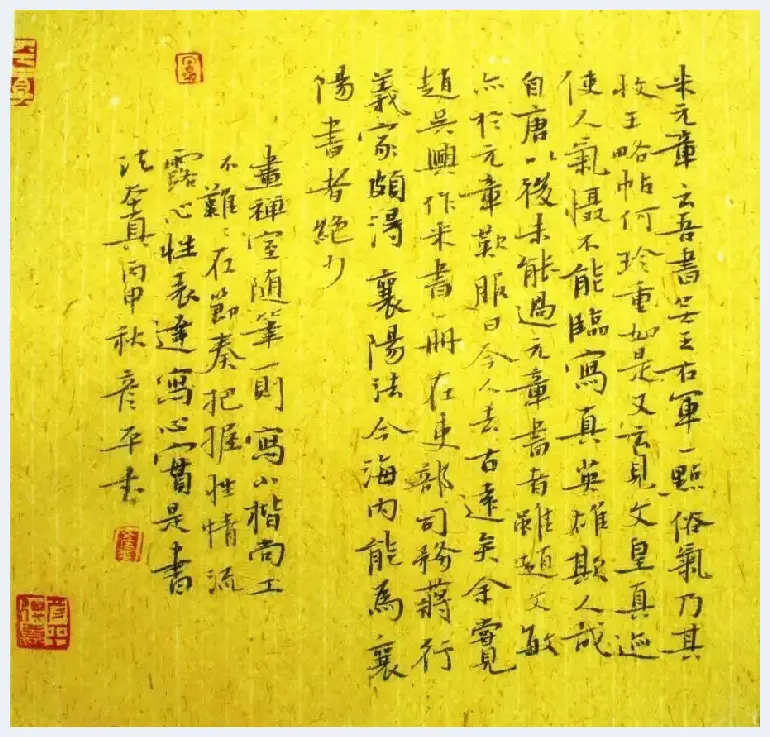 米元章云吾書无王右軍一點俗氣乃其
收王略帖何珍重如是又云見文皇真迹
使人氣懾不能臨寫真英雄欺人哉
自唐以後未能過元章書者雖趙文敏
亦於元章歎服曰今人去古遠矣余嘗見
趙吳興作米書一冊在吏部司務蔣行
義家頗淂襄陽法今海內能為襄
陽書者絕少
畫禪室随筆一則寫小楷尚工
不難〻在節奏把握性情流
露心性表達寫心實是書
法本真丙申秋彦平書